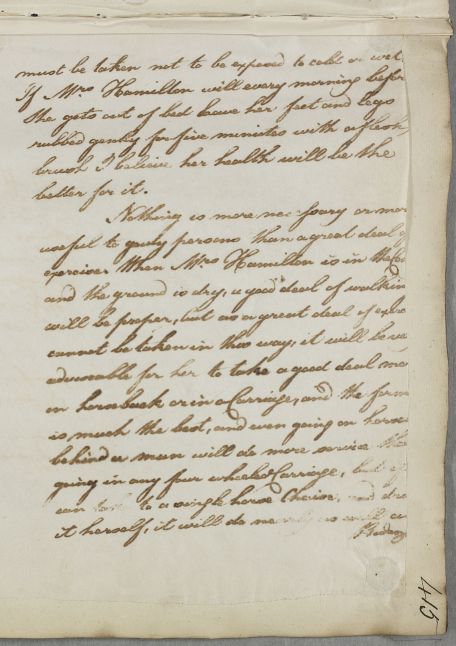 must be taken not to be exposed to cold or wet.
If Mrs Hamilton will every morning befor
she gets out of bed have her feet and legs
rubbed gently for five minutes with a flesh
brush I believe her health will be the
better for it.
Nothing is more necessary or mor
useful to gouty persons than a great deal of
exercise. When Mrs Hamilton is in the
and the ground is dry, a good deal of walkin
will be proper, but as a great deal of exer
cannot be taken in this way, it will be ve
adviseable for her to take a good deal mo
on horseback or in a Carriage, and the form
is much the best, and even going on horse
behind a man will do more service tha
going in any four wheeled Carriage, but if
can to a single horse Cheise, and dri
it herself, it will do as well as
415